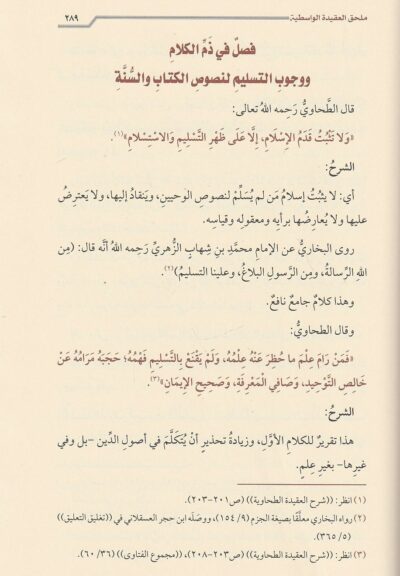 ملحق العقيدة الواسطية
٢٨٩
فصلٌ في ذَمِّ الكلامِ
ووجوبِ التسليمِ لنصوصِ الكتابِ والسُّنَّةِ
قال الطَّحاويُّ رَحِمه اللهُ تعالى:
«وَلا تَثْبُتُ قَدَمُ الإِسْلَامِ، إِلَّا عَلَى ظَهْرِ التَّسْلِيمِ وَالاسْتِسْلَامِ»(١).
الشرحُ:
أي: لا يثبُتُ إسلامُ مَن لم يُسَلِّمْ لنصوصِ الوحيينِ، ويَنقادُ إليها، ولا يَعترِضُ
عليها ولا يُعارِضُها برأيِه ومعقولِه وقياسِه.
روى البخاريُّ عن الإمامِ محمَّدِ بنِ شِهابٍ الزُّهريِّ رَحِمه اللهُ أنَّه قال: (مِن
اللهِ الرِّسالةُ، ومِن الرَّسولِ البلاغُ، وعلينا التسليمُ)(٢).
وهذا كلامٌ جامعٌ نافعٌ.
وقال الطحاويُّ:
«فَمَنْ رَامَ عِلْمَ ما حُظِرَ عَنْهُ عِلْمُهُ، وَلَمْ يَقْنَعْ بِالتَّسْلِيمِ فَهْمُهُ؛ حَجَبَهُ مَرَامُهُ عَنْ
خَالِصِ التَّوْحِيدِ، وَصَافِي الْمَعْرِفَةِ، وَصَحِيحِ الإِيمَانِ»(٣).
الشرحُ:
هذا تقريرٌ للكلامِ الأوَّلِ، وزيادةُ تحذيرٍ أنْ يُتَكلَّمَ في أصولِ الدِّينِ -بل وفي
غيرِها- بغيرِ عِلمٍ.
(١) انظر: ((شرح العقيدة الطحاوية)) (ص٢٠١-٢٠٣).
(٢) رواه البخاري معلَّقًا بصيغة الجزم (٩/ ١٥٤)، ووصَله ابن حجر العسقلاني في ((تغليق التعليق))
(٥/ ٣٦٥).
(٣) انظر: ((شرح العقيدة الطحاوية)) (ص٢٠٣-٢٠٨)، ((مجموع الفتاوى)) (٣٦/ ٦٠).